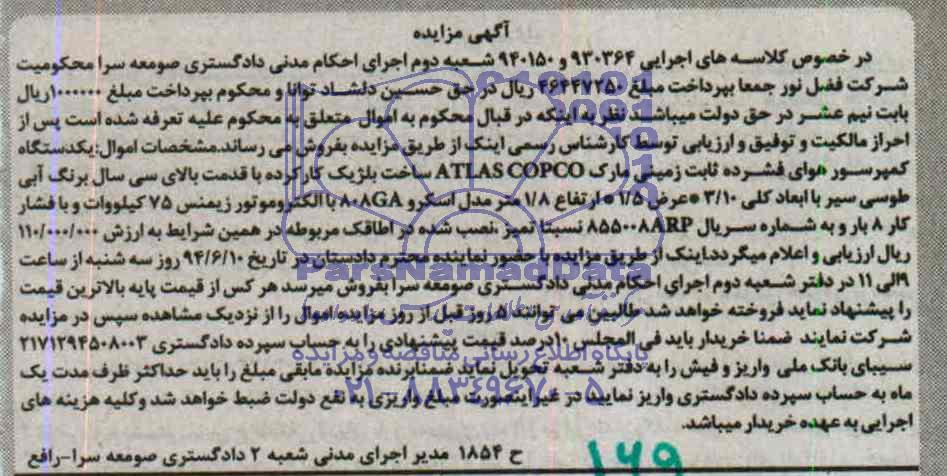 آگهی مزایده
در خصوص کلاسه های اجرایی ۹۳۰۳۶۴ و ۹۴۰۱۵۰ شعبه دوم اجرای احکام مدنی دادگستری صومعه سرا محکومیت
شرکت فضل نور جمعا بپرداخت مبلغ ۴۶۴۴۷۲۵۰ ریال در حق حسین دلشاد توانا و محکوم بپرداخت مبلغ ۱۰۰۰۰۰۰ریال
بابت نیم عشر در حق دولت میباشد نظر به اینکه در قبال محکوم به اموال متعلق به محکوم علیه تعرفه شده است پس از
احراز مالکیت و توقیف و ارزیابی توسط کارشناس رسمی اینک از طریق مزایده بفروش می رساند.مشخصات اموال:یکدستگاه
کمپرسور هوای فشرده ثابت زمینی مارک ATLAS COPCO ساخت بلژیک کارکرده با قدمت بالای سی سال برنگ آبی
طوسی سیر با ابعاد کلی ۳/۱۰ *عرض ۱/۵ * ارتفاع ۱/۸ متر مدل اسکرو ۸۰۸GA با الکتروموتور زیمنس ۷۵ کیلووات و با فشار
کار ۸ بار و به شماره سریال ۸۵۵۰۰۸ARP نسبتا تمیز ،نصب شده در اطاقک مربوطه در همین شرایط به ارزش ۱۱۰/۰۰۰/۰۰۰
ریال ارزیابی و اعلام میگردد.اینک از طریق مزایده با حضور نماینده محترم دادستان در تاریخ ۹۴/۶/۱۰ روز سه شنبه از ساعت
۹الی ۱۱ در دفتر شعبه دوم اجرای احکام مدنی دادگستری صومعه سرا بفروش میرسد هر کس از قیمت پایه بالاترین قیمت
را پیشنهاد نماید فروخته خواهد شد طالبین می توانند ۵ روز قبل از روز مزایده اموال را از نزدیک مشاهده سپس در مزایده
شرکت نمایند ضمنا خریدار باید فی المجلس ۱۰درصد قیمت پیشنهادی را به حساب سپرده دادگستری ۲۱۷۱۲۹۴۵۰۸۰۰۳
سیبای بانک ملی واریز و فیش را به دفتر شعبه تحویل نماید ضمنابرنده مزایده مابقی مبلغ را باید حداکثر ظرف مدت یک
ماه به حساب سپرده دادگستری واریز نماید در غیر اینصورت مبلغ واریزی به نفع دولت ضبط خواهد شد وکلیه هزینه های
اجرایی به عهده خریدار میباشد.
ح ۱۸۵۴ مدیر اجرای مدنی شعبه ۲ دادگستری صومعه سرا-رافع
۱۴۹
ParsNamadData
پایگاه اطلاع رسانی مناقصه و مزایده
۰۲۱-۸۸۳۴۹۶۷۰-۵